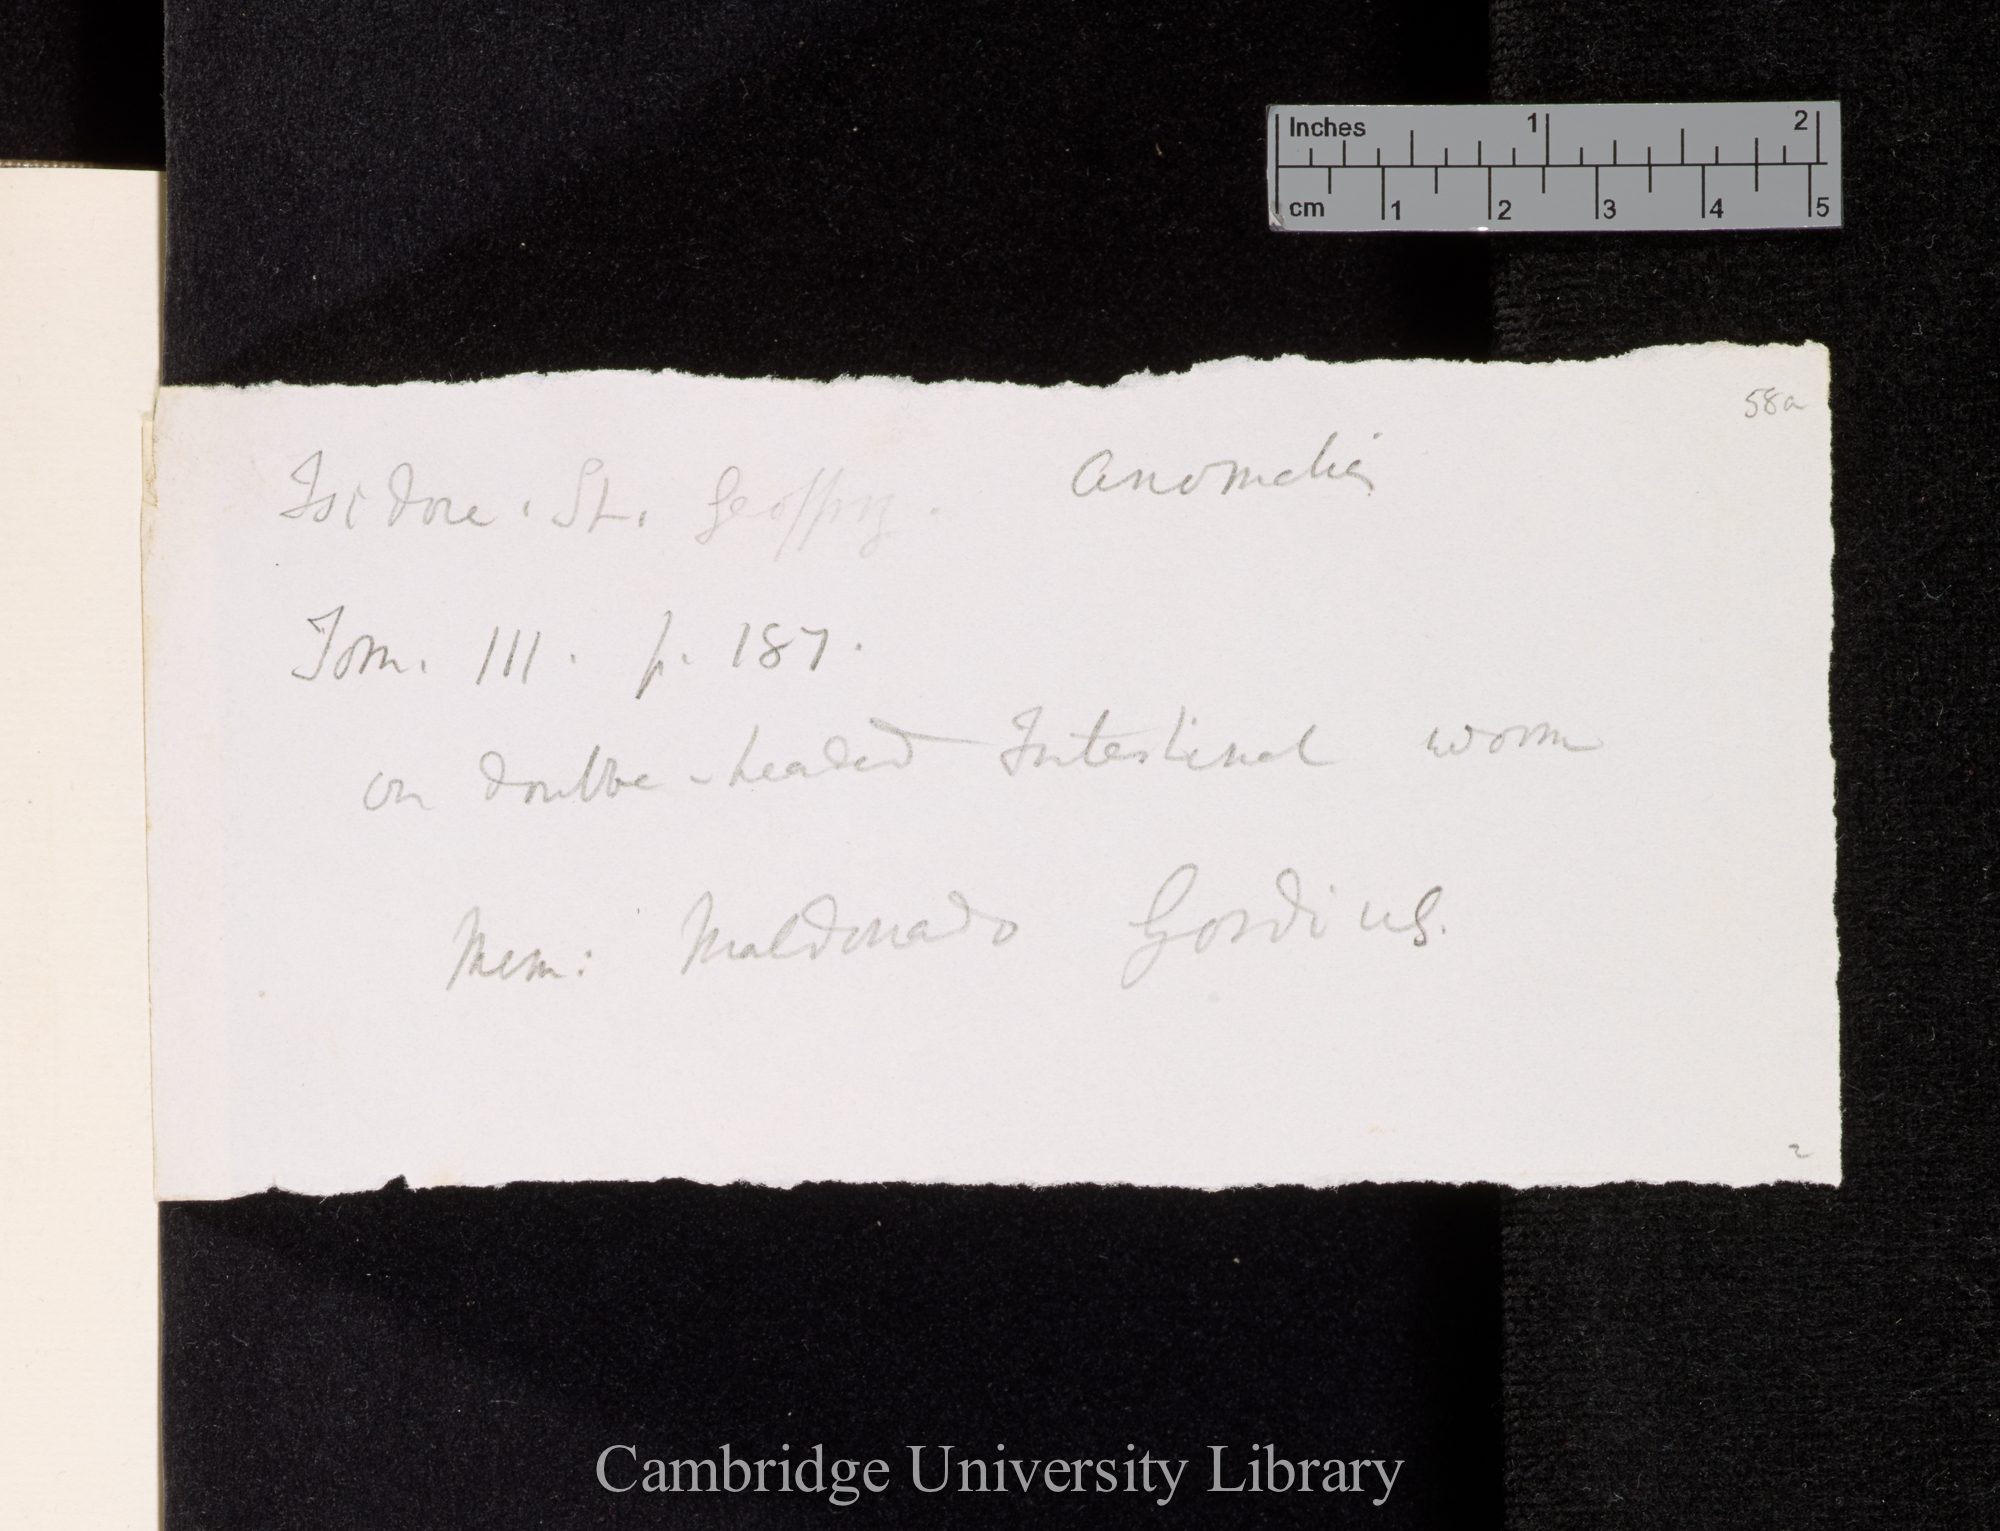 Inches 1 2
cm 1 2 3 4 5
58a
Isidore. St. Geoffry. Anomalies
Tom. III. p. 187.
on double-headed Intestinal worm
Mem: Maldonado Gordius.
2
Cambridge University Library